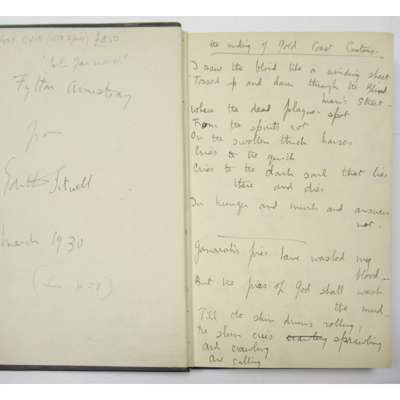 £850
Fytton Armstrong
from
Edith Sitwell
March 1930
the ending of Gold Coast Customs.
I saw the blind like a winding sheet
Tossed up and down through the blind
man's street -
Where the dead plague-spot
From the spirit's rot
On the swollen thick houses
Cries to the
Cries to the dark soul that lies
there and dies
In hunger and murk and answers
not.
fires have washed my
blood -
But the fires of God shall wash
the mud -
Till the skin drums rolling,
The slum cries sprawling
And crawling
Are calling